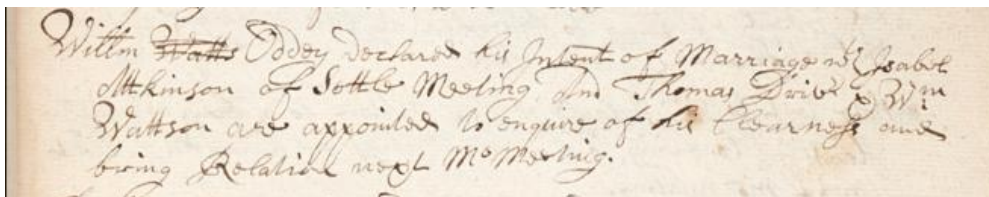 Willm Watts Oddey declared his Intent of Marriage wth Isabel
Attkinson of Settle Meeting And Thomas Driver & Wm
Wattson are appointed to enquire of his Clearness and
bring Relation next Mo Meeting.